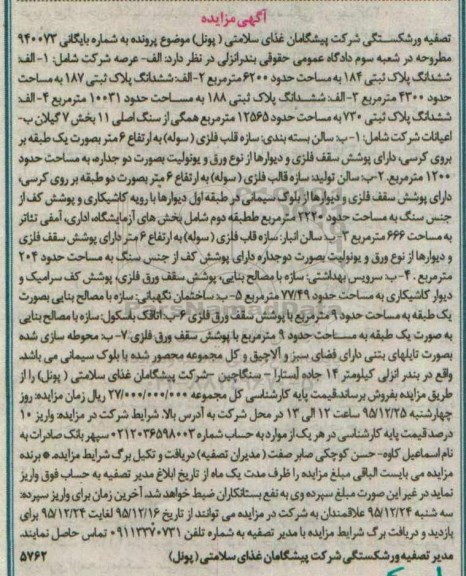 آگهی مزایده
تصفیه ورشکستگی شرکت پیشگامان غذای سلامتی ( پونل) موضوع پرونده به شماره بایگانی ۹۴۰۰۷۳
مطروحه در شعبه سوم دادگاه عمومی حقوقی بندرانزلی در نظر دارد: الف- عرصه شرکت شامل: ۱- الف:
ششدانگ پلاک ثبتی ۱۸۴ به مساحت حدود ۶۲۰۰ مترمربع ۲-الف: ششدانگ پلاک ثبتی ۱۸۷ به مساحت
حدود ۴۳۰۰ مترمربع ۳-الف: ششدانگ پلاک ثبتی ۱۸۸ به مساحت حدود ۱۰۰۳۱ مترمربع ۴-الف:
ششدانگ پلاک ثبتی ۷۳۰ به مساحت حدود ۱۲۵۶۵ مترمربع همگی از سنگ اصلی ۱۱ بخش ۷ گیلان ب-
اعیانات شرکت شامل: ۱-ب: سالن بسته بندی: سازه قلب فلزی ( سوله) به ارتفاع ۶ متر بصورت یک طبقه بر
بروی کرسی، دارای پوشش سقف فلزی و دیوارها از نوع ورق و یونولیت بصورت دو جداره، به مساحت حدود
۱۲۰۰ مترمربع. ۲-ب: سالن تولید: سازه قالب فلزی ( سوله) به ارتفاع ۶ متر بصورت دو طبقه بر روی کرسی،
دارای پوشش سقف فلزی و دیوارها از بلوک سیمانی در طبقه اول دیوارها با رویه کاشیکاری و پوشش کف از
جنس سنگ به مساحت حدود ۲۲۲۰ مترمربع ططبقه دوم شامل بخش های آزمایشگاه، اداری، آمفی تئاتر
به مساحت ۶۶۶ مترمربع ۳-ب: سالن انبار: سازه قاب فلزی ( سوله) به ارتفاع ۶ متر دارای پوشش سقف فلزی
و دیوارها از نوع ورق و یونولیت بصورت دوجداره دارای پوشش کف از جنس سنگ به مساحت حدود ۲۰۴
مترمربع . ۴-ب: سرویس بهداشتی: سازه با مصالح بنایی، پوشش سقف ورق فلزی، پوشش کف سرامیک و
دیوار کاشیکاری به مساحت حدود ۷۷/۴۹ مترمربع ۵-ب: ساختمان نگهبانی: سازه با مصالح بنایی بصورت
یک طبقه به مساحت حدود ۹ مترمربع با پوشش سقف ورق فلزی ۶-ب: اتاقک باسکول: سازه با مصالح بنایی
به صورت یک طبقه به مساحت حدود ۹ مترمربع با پوشش سقف ورق فلزی. ۷-ب: محوطه سازی شده
بصورت تایلهای بتنی دارای فضای سبز و آلاچیق و کل مجموعه محصور شده با بلوک سیمانی می باشد.
واقع در بندر انزلی کیلومتر ۱۴ جاده آستارا – سنگاچین –شرکت پیشگامان غذای سلامتی ( پونل) را از
طریق مزایده بفروش برساند.قیمت پایه کارشناسی کل مجموعه ۲۷/۰۰۰/۰۰۰/۰۰۰ ریال زمان مزایده: روز
چهارشنبه ۹۵/۱۲/۲۵ ساعت ۱۲ الی ۱۳ در محل شرکت به آدرس بالا. شرایط شرکت در مزایده: واریز ۱۰
درصد قیمت پایه کارشناسی در هر یک از موارد به حساب شماره ۰۲۱۲۰۳۶۵۹۸۰۰۳ سپهر بانک صادرات به
نام اسماعیل کاوه- حسن کوچکی صابر صفت ( مدیران تصفیه) دریافت و تکمیل برگ شرایط مزایده. * برنده
مزایده می بایست الباقی مبلغ مزایده را ظرف مدت یک ماه از تاریخ ابلاغ مدیر تصفیه به حساب فوق واریز
نماید در غیر این صورت مبلغ سپرده وی به نفع بستانکاران ضبط خواهد شد. آخرین زمان برای واریز سپرده:
سه شنبه ۹۵/۱۲/۲۴ علاقمندان به شرکت در مزایده می توانند از تاریخ ۹۵/۱۲/۱۶ لغایت ۹۵/۱۲/۲۴ برای
بازدید و دریافت برگ شرایط مزایده با مدیر تصفیه به شماره تلفن ۰۹۱۱۳۳۷۰۷۳۱ تماس حاصل نمایند.
مدیر تصفیه ورشکستگی شرکت پیشگامان غذای سلامتی ( پونل) ۵۷۶۲